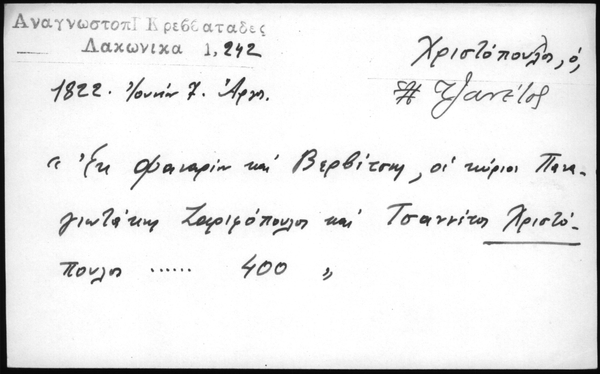 Αναγνωστοπ Κρεββαταδες
Λακωνικα 1,242
Χριστόπουλος, ὁ,
# Τζανέτος
1822. Ἰουνίου 7. Ἄργος.
"Ἐκ Φαναρίου καὶ Βερβίτσης, οἱ κύριοι Πανα-
γιωτάκης Ζαριφόπουλος καὶ Τσαννέτος Χριστό-
πουλος ...... 400 "